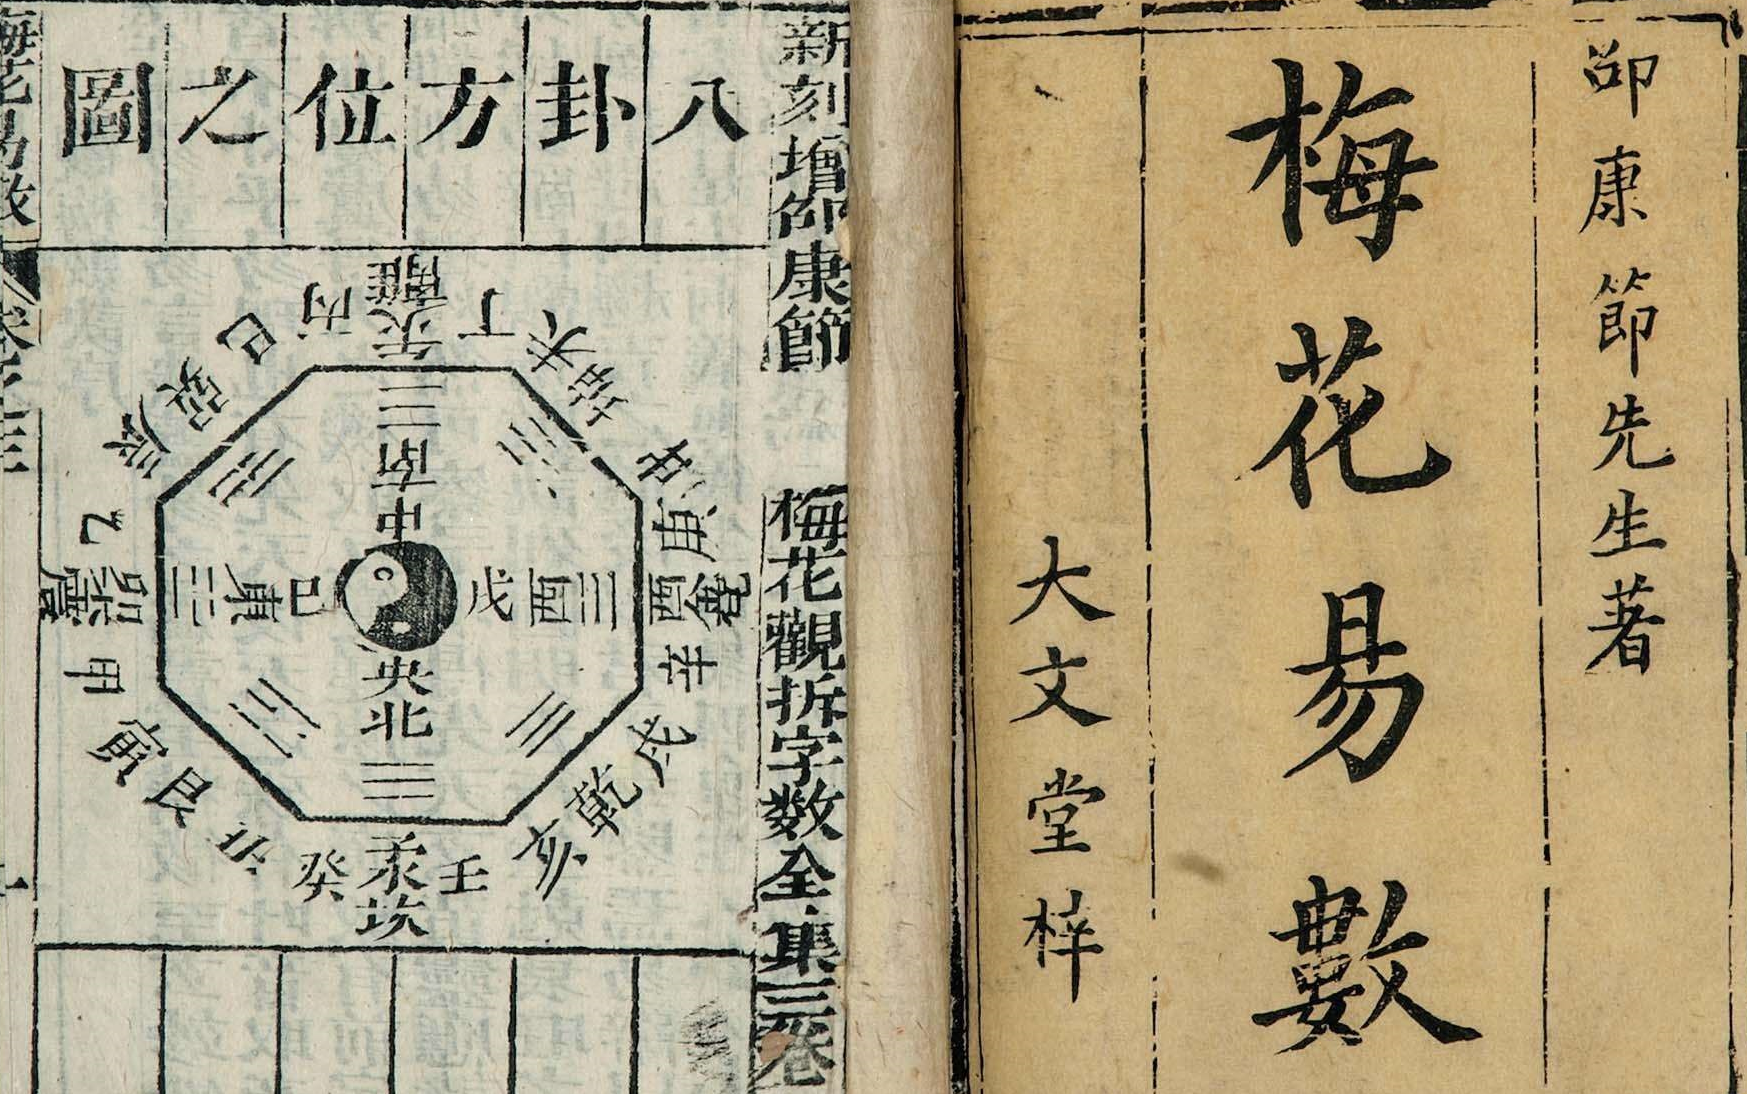 邵康節先生著
梅花易數
大文堂梓
新刻增邵康節 梅花觀拆字数全集三卷
八卦方位之圖
離午
丁
未
坤
申
庚
酉兌
辛
戌
乾
亥
壬
子坎
癸
丑
艮
寅
甲
卯震
乙
辰
巽
巳
丙
南
中
央
北
東
己
戊
西
梅花易数
卷之三
一